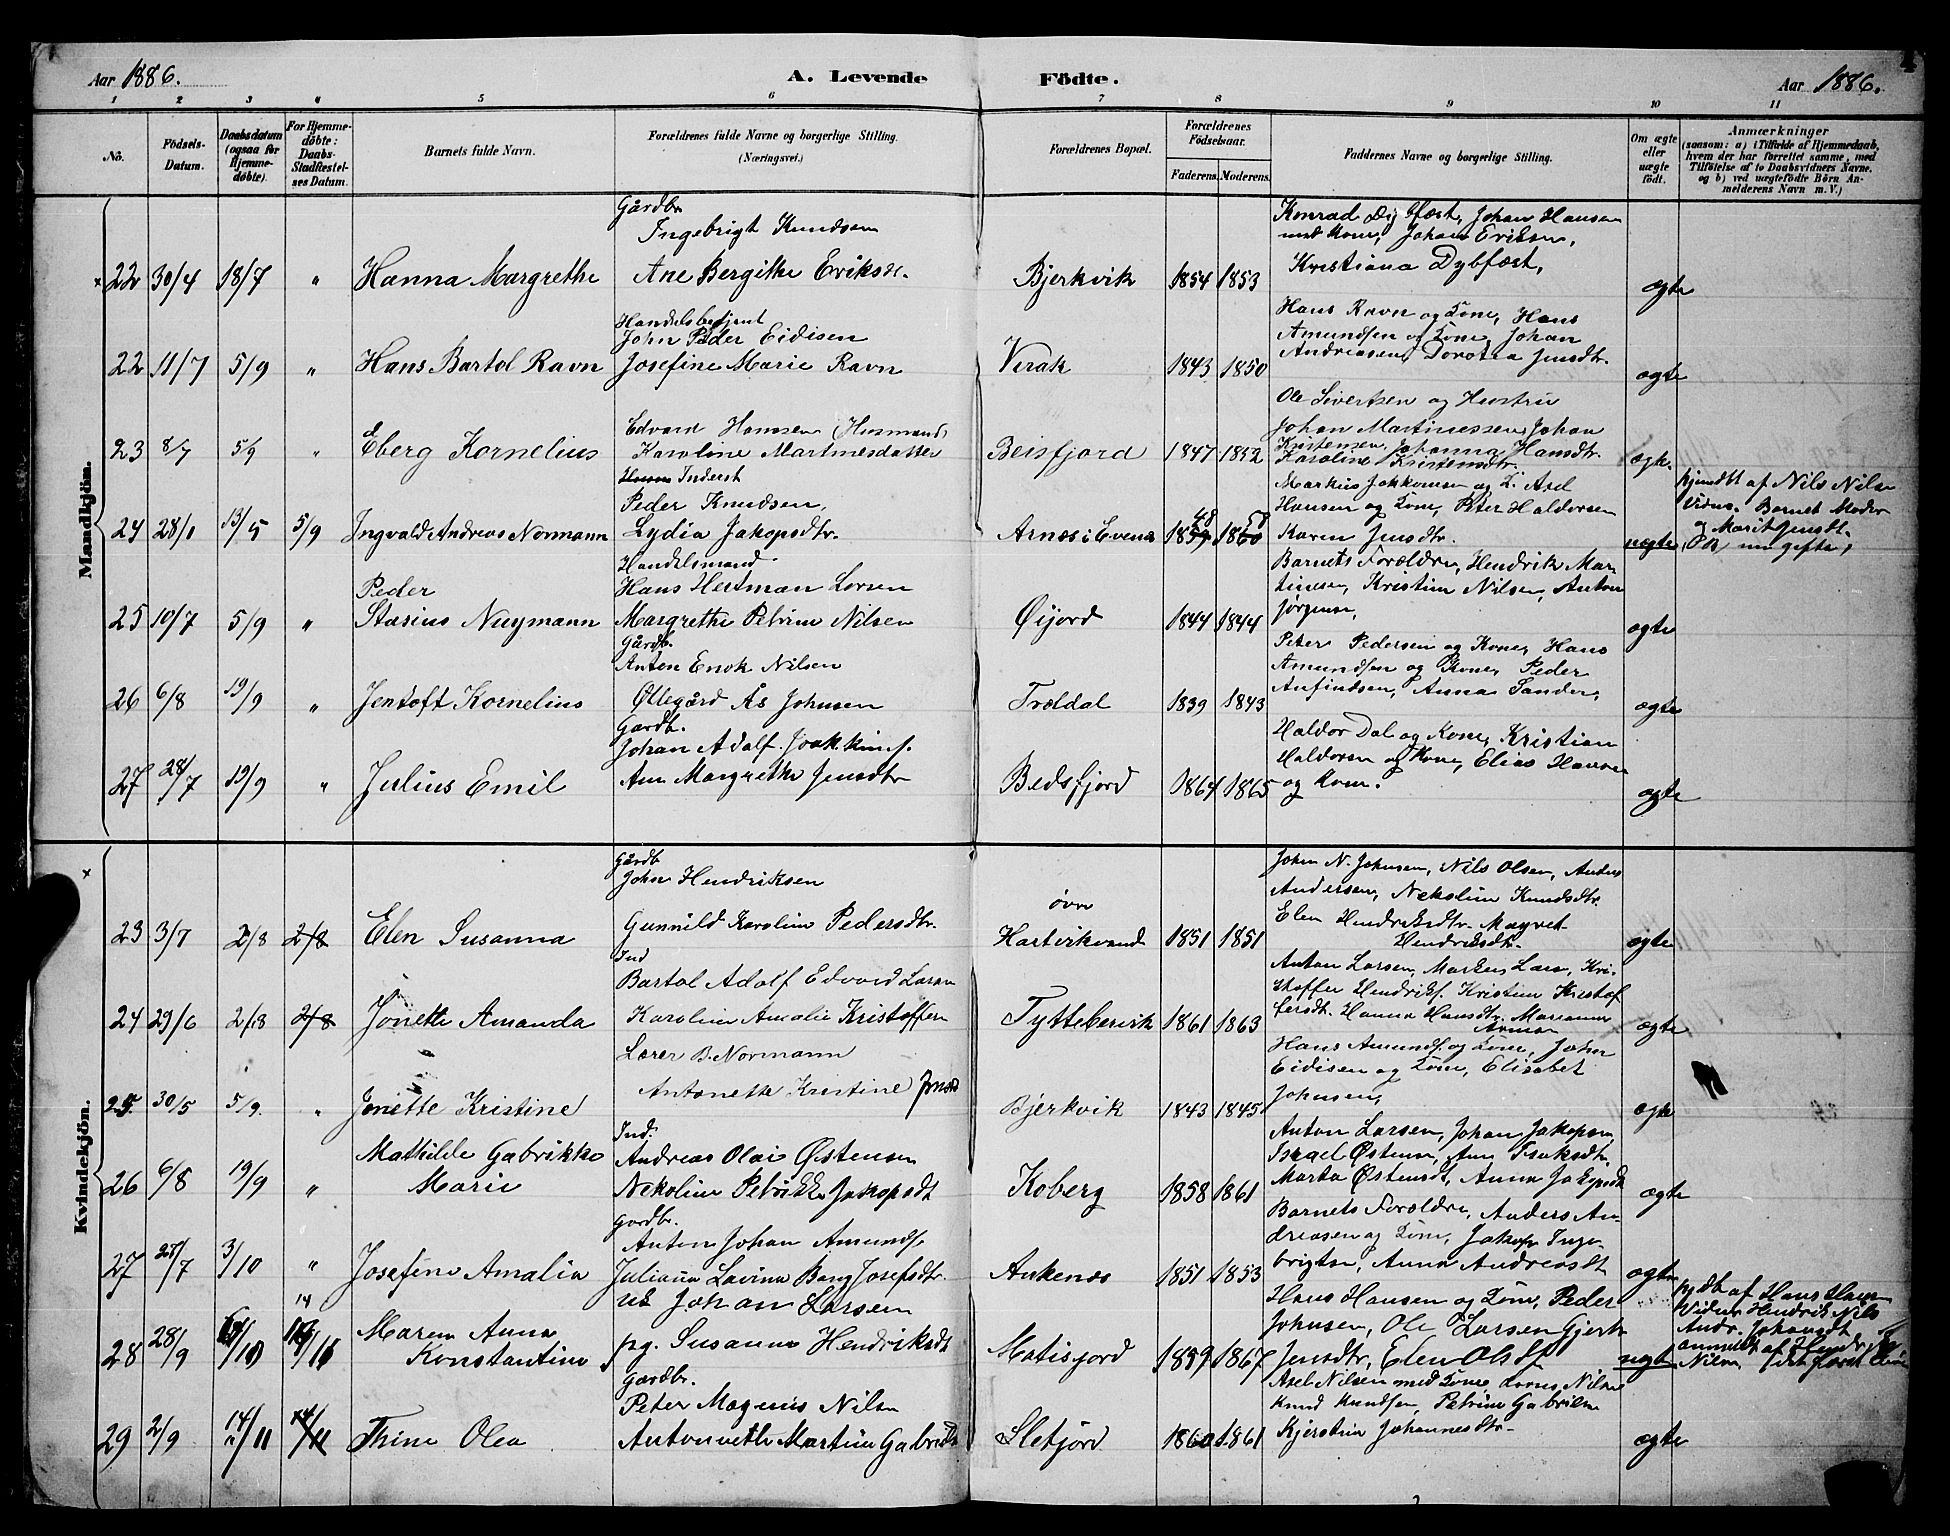 4
Aar 1886.
A. Levende
Födte.
Aar 1886.
1 2 3 4 5 6 7 8 9 10 11
No.
Födsels-
Datum.
Daabsdatum
(ogsaa for
Hjemme-
døbte).
For Hjemme-
døbte:
Daabs-
Stadfæstel-
ses Datum.
Barnets fulde Navn.
Forældrenes fulde Navne og borgerlige Stilling.
(Næringsvei.)
Forældrenes Bopæl.
Forældrenes
Födselsaar.
Faderens. Moderens.
Faddernes Navne og borgerlige Stilling.
Om ægte
eller
uægte
födt.
Anmærkninger
(saasom: a) i Tilfælde af Hjemmedaab,
hvem der har forrettet samme, med
Tilföielse af to Daabsvidners Navne.
og b) ved uægtefödte Börn An-
melderens Navn m. V.)
Mandkjön.
Gårdbr
Ingebrigt Knudsen
Konrad Dybfæst, Johan Hansen
med Kone, Johan Eriksen,
22 30/4 18/7 " Hanna Margrethe Ane Bergithe Eriksdr. Bjerkvik 1854 1853 Kristiana Dybfæst, ægte
Handelsbetjent
John Peder Eidisen
Hans Ravn og Kone, Hans
Amundsen og Kone, Johan
22 11/7 5/9 " Hans Bartol Ravn Josefine Marie Ravn Virak 1843 1850 Andreasen, Dorotea Jensdtr. ægte
Ole Sivertsen og Hustru
Edvard Hansen (Husmand)
Johan Martinussen, Johan
23 8/7 5/9 " Eberg Kornelius Karoline Martinesdatter Beisfjord 1847 1852 Kristensen, Johanna Hansdtr. ægte.
Karoline Kristensdtr.
Inderst
Peder Knudsen,
Markus Jokkumsen og K. Axel
Hansen og Kone, Peter Haldorsen
24 28/1 13/5 5/9 Ingvald Andreas Normann Lydia Jakopsdtr. Arnæs i Evenæs 1859 1860 Karen Jensdtr. uægte
hjemdbt af Nils Nilsen
Vidner Barnet Moder
og Marit Jensdt.
Handelsmand
Hans Hertman Lorsen
Barnets Forældre, Hendrik Mar-
tinsen, Kristine Nilsen, Anton
25 10/7 5/9 " Peder Stasius Nuymann Margrethe Petrine Nilsen Øijord 1844 1844 Jørgensen, ægte
Gårdb.
Anton Enok Nilsen
Peter Pedersen og Kone, Hans
Amundsen og Kone, Peder
26 6/8 19/9 " Jentoft Kornelius Øllegård Ås Johnsen Troldal 1839 1843 Anfindsen, Anna Sander, ægte
Gardb.
Johan Adolf Joakkims.
Haldor Dal og Kone, Kristian
Haldorsen og Kone, Elias Hansen
27 28/7 19/9 " Julius Emil Ane Margrethe Jensdtr Bedsfjord 1864 1865 og Kone. ægte
Kvindekjön.
Gårdb
John Hendriksen
John N. Johnsen, Nils Olsen, Anders
Andersen, Nekoline Knudsdtr.
øvre
23 3/7 2/8 2/8 Elen Susanna Gunnild Karoline Pedersdtr. Hartvikvand 1851 1851 Elen Hendriksdtr. Magret ægte
Hendriksdtr.
Ind
Bartol Adolf Edvard Larsen
Anton Larsen, Markus Lars, Kri-
stoffer Hendriks. Kristine Kristof
24 29/6 2/8 2/8 Jonette Amanda Karoline Amalie Kristoffers Tyttebervik 1861 1863 fersdt. Hanna Hansdtr. Marianne ægte
Lærer B. Normann
Hans Amunds. og Kone, John
Eidisen og Kone, Elisabet
25 30/5 5/9 " Jonette Kristine Antonette Kristine Jensd Bjerkvik 1843 1845 Johnsen, ægte
Ind.
Andreas Olais Østensen
Anton Larsen, Johan Jakopsen,
Israel Østens, Ane Isaksdt.
26 6/8 19/9 " Mathilde Gabrikke Marie Nekoline Petrikke Jakopsdt Koberg 1858 1861 Marta Østensdt, Anna Jakopsdt ægte
Gardbr.
Anton Johan Amunds.
Barnets Forældre, Anders An-
dreasen og Kone, Jakop Inge-
27 27/7 3/10 " Josefine Amalia Juliana Lavina Bang Josefsdtr Ankenæs 1851 1853 brigtsen, Anna Andreasdt ægte
Johan Larsen
Hans Hansen og Kone, Peder
Johnsen, Ole Larsen Gjert
28 28/9 Maren Anna Konstantine pg. Susanna Hendriksdt Matisjord 1859 1867 Jensdtr, Elen Olsdt uægte
hjdbt af Hans Hansen
Vidner Hendrik Nils
Andr. Johansdt
anmeldt af Hendrik
Nilsen
Gardbr.
Peter Magnus Nilsen
Axel Nilsen med Kone, Lorns Nilsen
Knud Knudsen, Petrine Gabrielsen
29 2/9 14/11 14/11 Trine Olea Antonette Martine Gabrielsd Sletjord 1860 1861 Kjerstina Johannesdtr. ægte